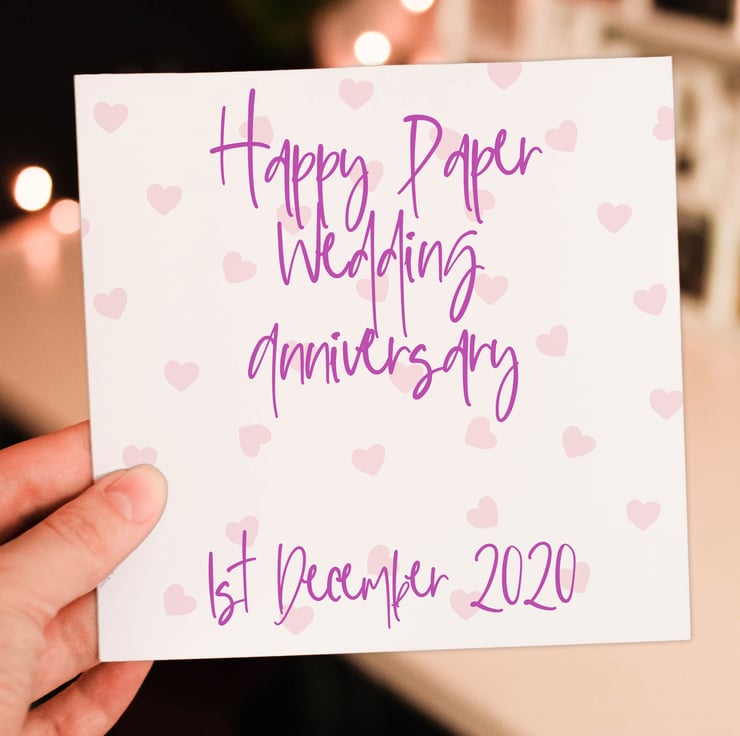 Happy Paper
Wedding
anniversary
1st December 2020